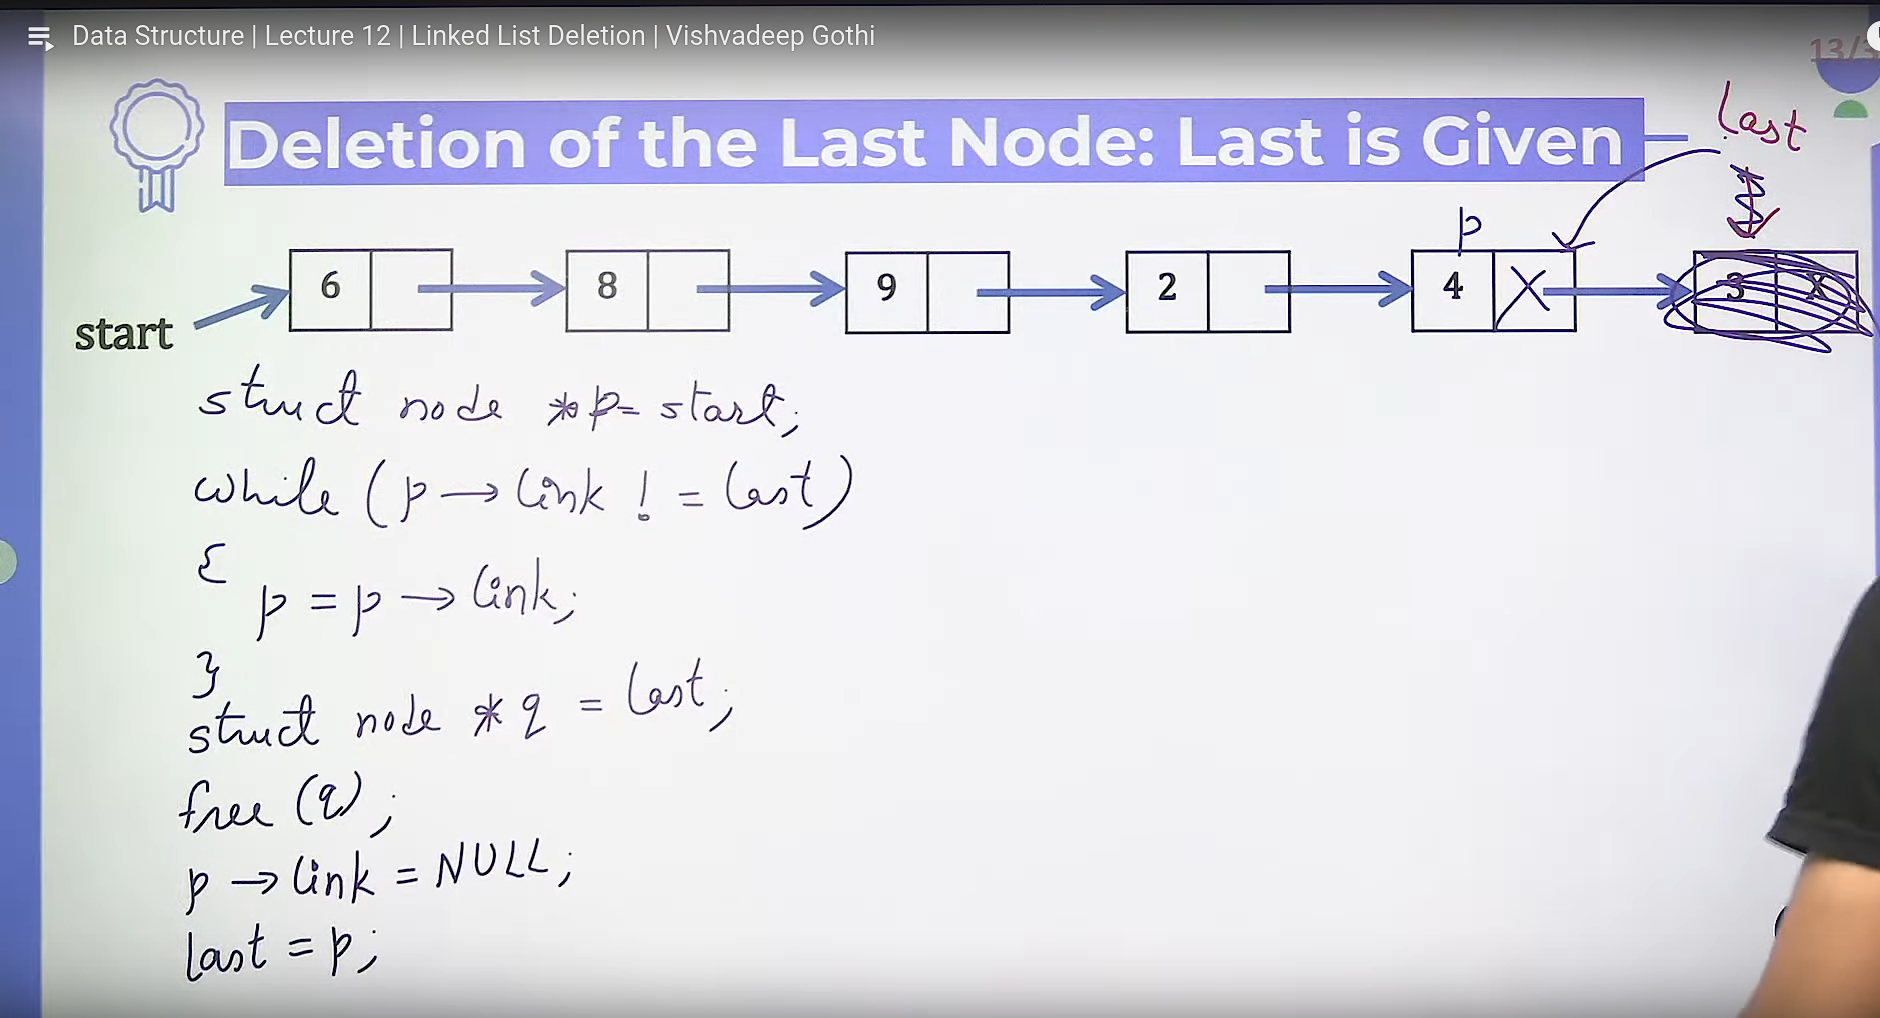 Data Structure | Lecture 12 | Linked List Deletion | Vishvadeep Gothi
Deletion of the Last Node: Last is Given
last
p
6 8 9 2 4 X 3 X
start
struct node *p= start;
while (p → link != last)
{
p = p → link;
}
struct node *q = last;
free (q);
p → link = NULL;
last = p;